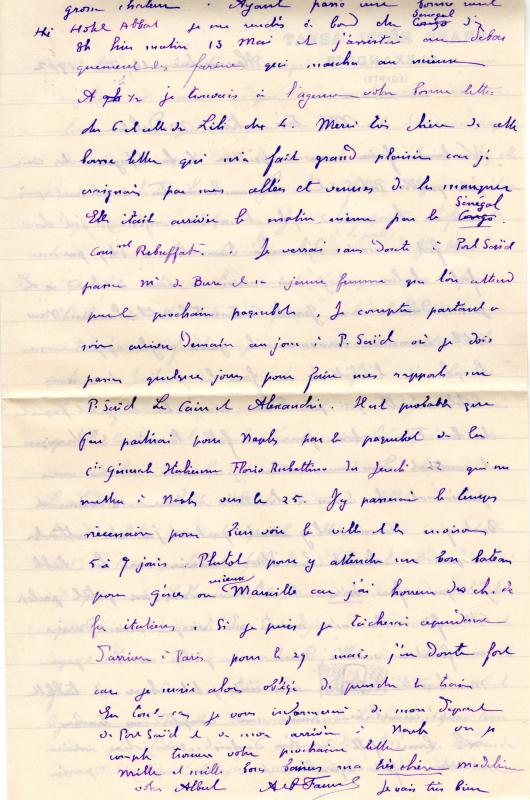 grosse chaleur. Ayant passé une bonne nuit
Hotel Abbat je me rendis à bord du Sénégal Congo dès
8h hier matin 13 Mai et j'assistai au débar
quement des farines qui marcha au mieux
A 9h ½ je trouvais à l'agence votre bonne lettre
du 6 et celle de Lili du 4. Merci très chère de cette
bonne lettre qui m'a fait grand plaisir car je
craignais par mes allées et venues de la manquer
Elle était arrivée le matin même par le Sénégal Congo.
Com^nt Rebuffat. Je verrai sans doute à Port Saïd
passer Mr de Bure et sa jeune femme que l'on attend
par le prochain paquebot. Je compte partant ce
soir arriver demain au jour à P. Saïd où je dois
passer quelques jours pour faire mes rapports sur
P. Saïd Le Caire et Alexandrie. Il est probable que
partirai pour Naples par le paquebot de la
Cie Générale Italienne Florio Rubattino du Jeudi 22 qui me
mettra à Naples vers le 25. J'y passerai le temps
nécessaire pour bien voir la ville et les environs
5 à 7 jours. Plutôt pour y attendre un bon bateau
pour Gênes ou mieux Marseille car j'ai horreur des ch. de
fer italiens. Si je puis je tâcherai cependant
d'arriver à Paris pour le 29 mais j'en doute fort
car je serais alors obligé de prendre le train
En tout cas je vous informerai de mon départ
de Port Saïd et de mon arrivée à Naples où je
compte trouver votre prochaine lettre
Mille et mille bons baisers ma très chère Madeleine
votre Albert
Je vais très bien